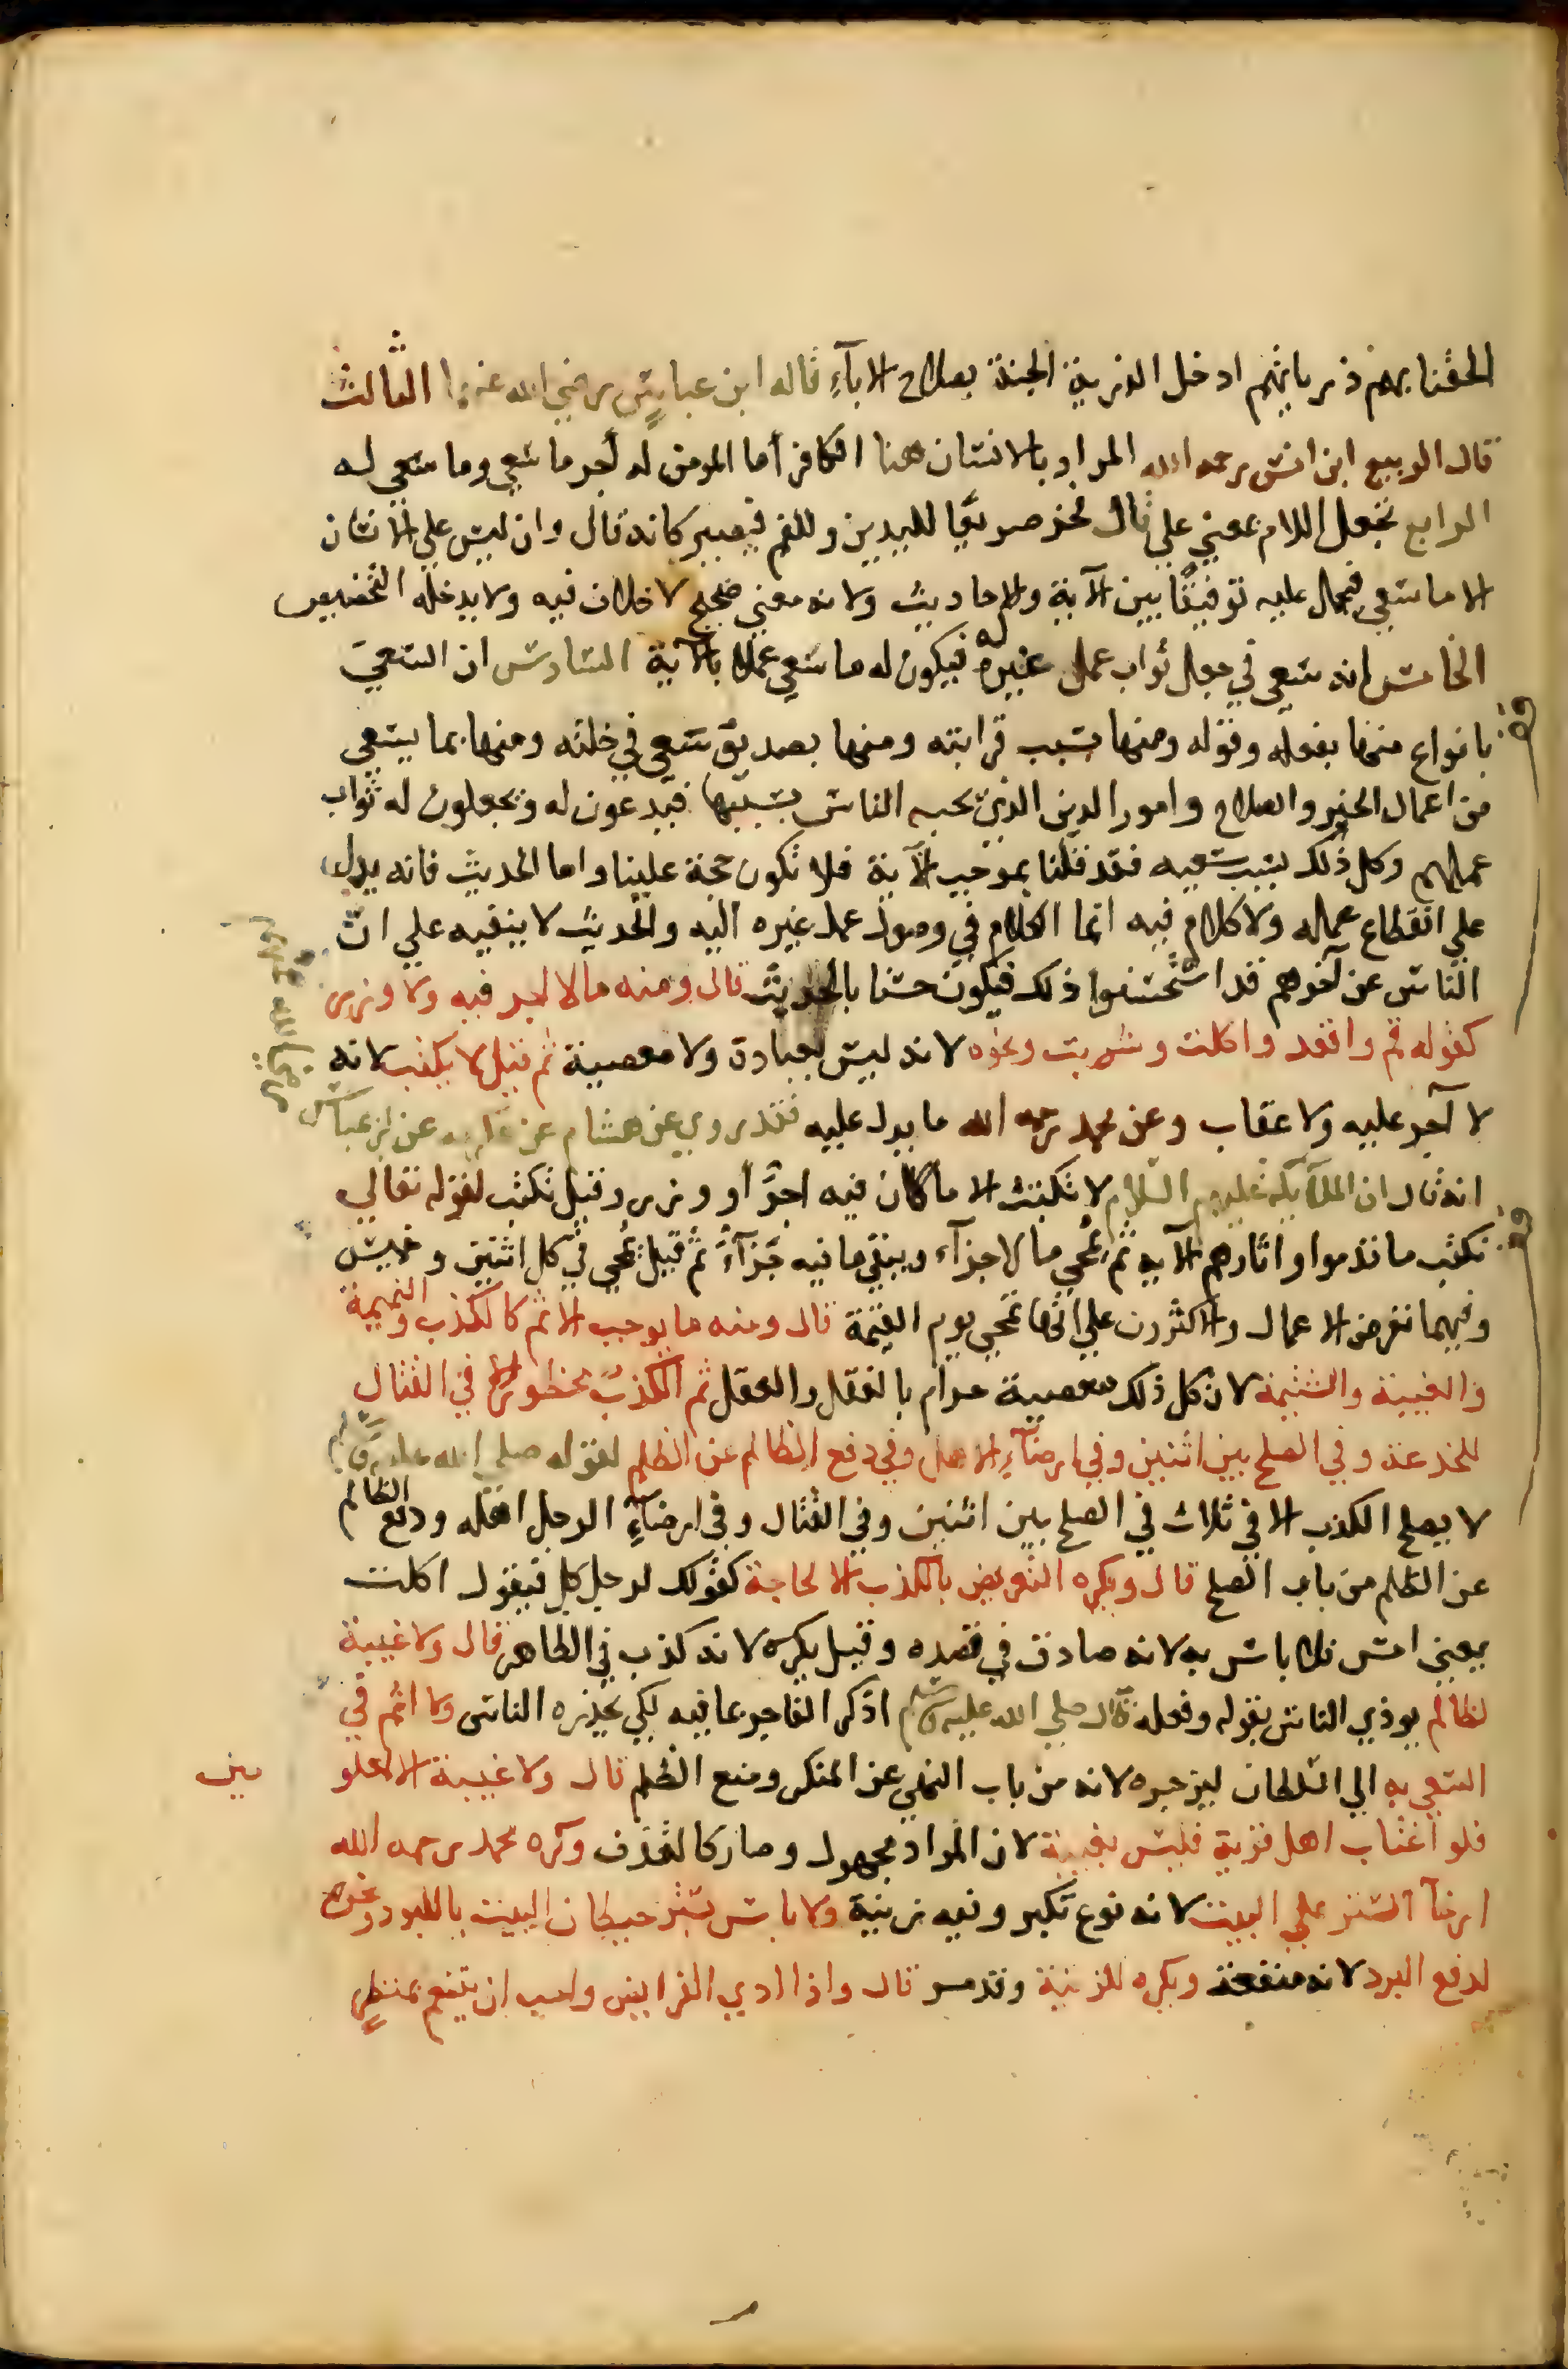 الحقنا بهم ذرياتهم ادخل الذرية الجنة بصلاح الاباء قاله ابن عباس رضي الله عنهما الثالث
قال الربيع ابن انس رحمه الله المراد بالانسان هنا الكافر أما المومن له أجر ما سعي وما سعي له
الرابع نجعل اللام بمعني علي قال فخر صريعا لليدين وللفم فيصير كانه قال وان ليس علي الانسان
الا ما سعي فيحمل عليه توفيقا بين الآية والاحاديث ولانه معني صحيح لا خلاف فيه ولا يدخله التخصيص
الخامس انه سعي في جعل ثواب عمل غيره له فيكون له ما سعي عملا بالآية السادس ان السعي
بانواع منها بفعله وقوله ومنها بسبب قرابته ومنها بصديق سعي في خلته ومنها بما يسعي
من اعمال الخير والصلاح وامور الدين الذي يحبه الناس بسببها فيدعون له ويجعلون له ثواب
عملهم وكل ذلك بسبب سعيه فقد قلنا بموجب الآية فلا تكون حجة علينا واما الحديث فانه يدل
علي انقطاع عمله ولا كلام فيه انما الكلام في وصول عمل غيره اليه والحديث لا ينفيه علي ان
الناس عن آخرهم قد استحسنوا ذلك فيكون حسنا بالحديث قال ومنه مالا اجر فيه ولا وزر
كقوله قم واقعد واكلت وشربت ونحوه لانه ليس بعبادة ولا معصية ثم قيل لا يكتب لانه
لا آجر عليه ولا عقاب وعن محمد رحمه الله ما يدل عليه فقد روي عن هشام عن عكرمه عن ابن عباس
انه قال ان الملآيكة عليهم السلام لا تكتب الا ما كان فيه اجرٌ أو وزر وقيل تكتب لقوله تعالي
نكتب ما قدموا واثارهم الآية ثم يمحي ما لا جزآء ويبقي ما فيه جزآء ثم قيل يمحي في كل اثنين وخميس
وفيهما تعرض الاعمال والاكثرون علي انها تمحي يوم القيمة قال ومنه ما يوجب الاثم كالكذب والنميمة
والغيبة والشتيمة لان كل ذلك معصية حرام بالنقل والعقل ثم الكذب محظور الا في القتال
للخدعة وفي الصلح بين اثنين وفي ارضآء الاهل وفي دفع الظالم عن الظلم لقوله صلي الله عليه وسلم
لا يصلح الكذب الا في ثلاث في الصلح بين اثنين وفي القتال وفي ارضآء الرجل اهله ودفع الظالم
عن الظلم من باب الصلح قال ويكره التعريض بالكذب الا لحاجة كقولك لرجل كل فيقول اكلت
يعني امس فلا باس به لانه صادق في قصده وقيل يكره لانه كذب في الظاهر قال ولا غيبة
لظالم يوذي الناس بقوله وفعله قال صلي الله عليه وسلم اذكر الفاجر بما فيه لكي يحذره الناس ولا اثم في
السعي به الي السلطان ليزجره لانه من باب النهي عن المنكر ومنع الظلم قال ولا غيبة الا لمعلو مين
فلو اغتاب اهل قرية فليس بغيبة لان المراد مجهول وصار كالقذف وكره محمد رحمه الله
ارخآ الستر علي البيت لانه نوع تكبر وفيه زينة ولا باس بستر حيطان البيت باللبود ونحوه
لدفع البرد لانه منفعة ويكره للزينة وقد مر قال واذا ادي الفرايض واحب ان يتنعم بمنظرٍ